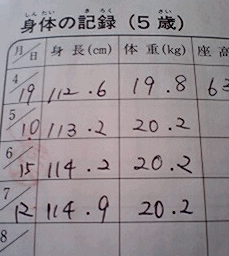 しんたい きろく さい
身体の記録(5歳)
月/日 身長(cm) 体重(kg) 座高
4/19 112.6 19.8 63
5/10 113.2 20.2
6/15 114.2 20.2
7/12 114.9 20.2
8